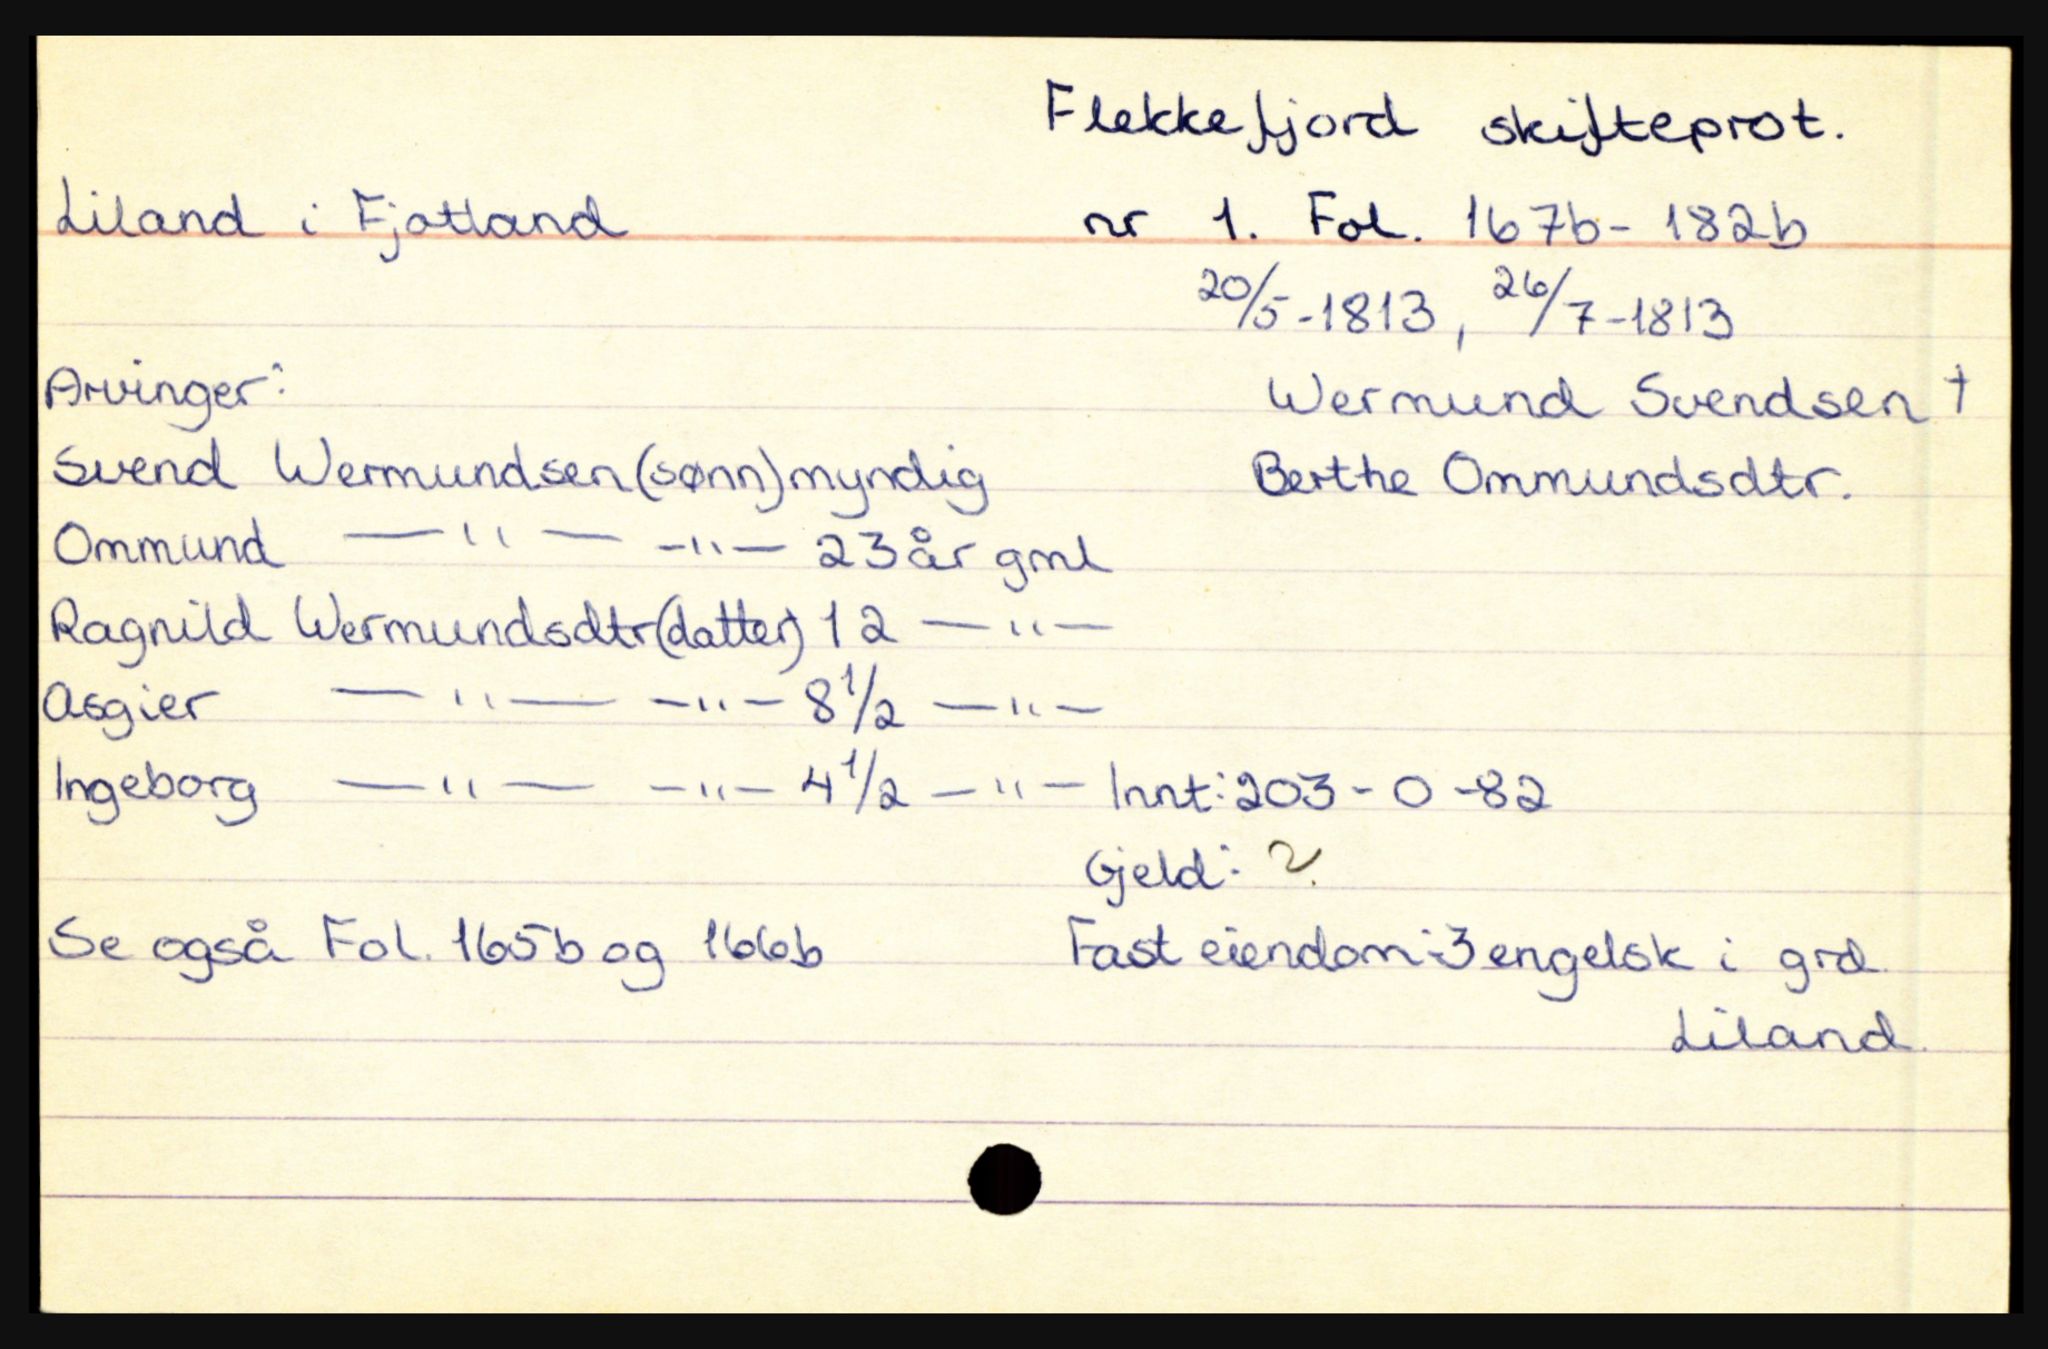 Flekkefjord skifteprot.
Liland i Fjotland nr 1. Fol. 167b- 182b
20/5-1813, 26/7-1813
Arvinger: Wermund Svendsen †
Svend Wermundsen (sønn) myndig Berthe Ommundsdtr.
Ommund —"— -"- 23 år gml
Ragnild Wermundsdtr (datter) 12 —"—
Asgier —"— -"- 8 1/2 —"—
Ingeborg —"— -"- 4 1/2 —"— Innt: 203 - 0 -82
Gjeld: ?
Se også Fol. 165b og 166b Fast eiendom: 3 engelsk i grd.
Liland.